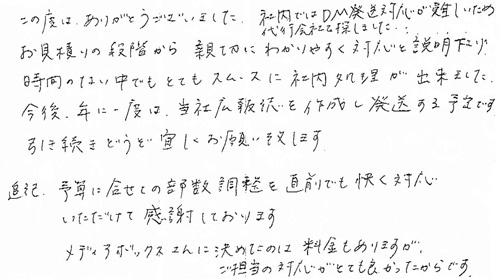 この度は、ありがとうございました。社内ではDM発送対応が難しいため
代行会社を探しました・・
お見積りの段階から親切にわかりやすく対応と説明下さり、
時間のない中でもとてもスムースに社内処理が出来ました。
今後、年に一度は、当社広報紙を作成し発送する予定です
引き続きどうぞ宜しくお願い致します。
追記. 予算に合せての部数調整を直前でも快く対応
いただけて感謝しております
メディアボックスさんに決めたのは料金もありますが、
ご担当の対応がとても良かったからです。